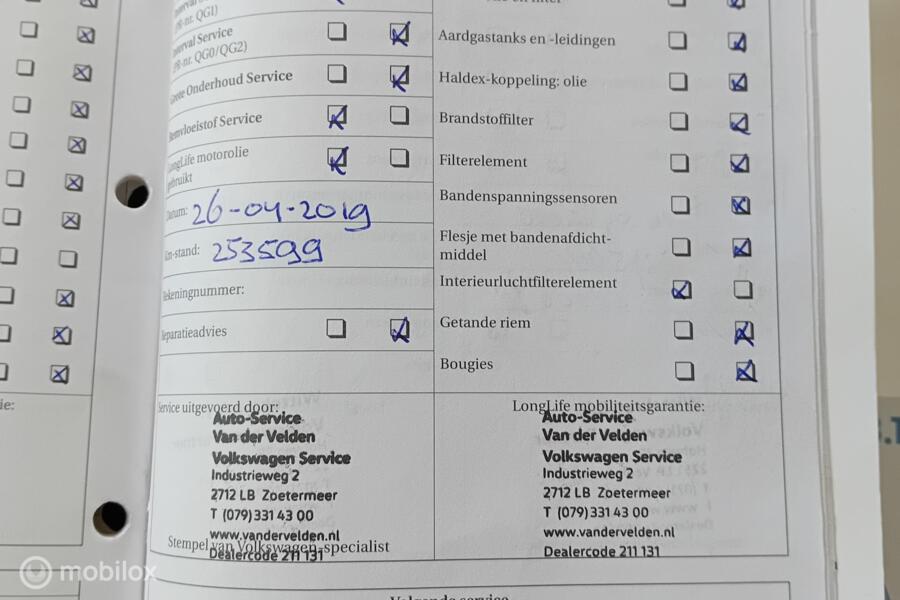 (PR-nr. QG1)
Interval Service
(PR-nr. QG0/QG2)
Grote Onderhoud Service
Remvloeistof Service
LongLife motorolie
gebruikt
Datum: 26-04-2019
Km-stand: 253599
Rekeningnummer:
Reparatieadvies
Aardgastanks en -leidingen
Haldex-koppeling: olie
Brandstoffilter
Filterelement
Bandenspanningssensoren
Flesje met bandenafdicht-
middel
Interieurluchtfilterelement
Getande riem
Bougies
Service uitgevoerd door:
Auto-Service
Van der Velden
Volkswagen Service
Industrieweg 2
2712 LB Zoetermeer
T (079) 331 43 00
www.vandervelden.nl
Stempel van Volkswagen-specialist
Dealercode 211 131
LongLife mobiliteitsgarantie:
Auto-Service
Van der Velden
Volkswagen Service
Industrieweg 2
2712 LB Zoetermeer
T (079) 331 43 00
www.vandervelden.nl
Dealercode 211 131
Volgende service
mobilox